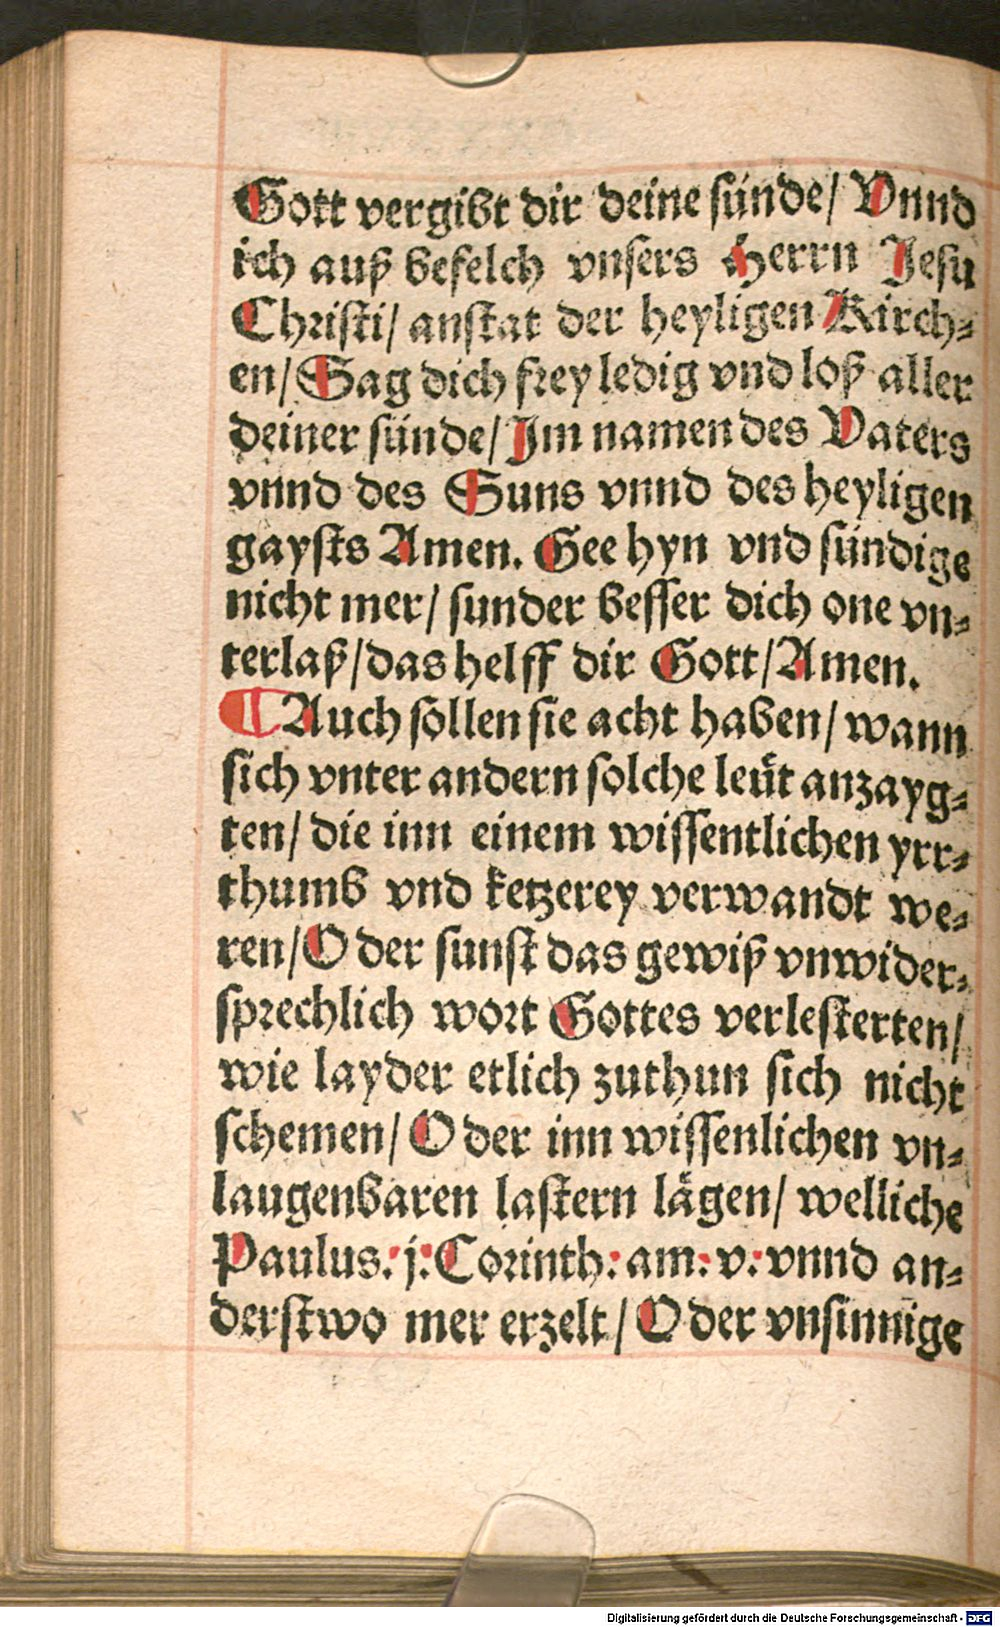 Gott vergibt dir deine sünde/ Vnnd
ich auß befelch vnsers Herrn Jesu
Christi/ anstat der heyligen Kirch⸗
en/ Sag dich frey ledig vnd loß aller
deiner sünde/ Im namen des Vaters
vnnd des Suns vnnd des heyligen
gaysts Amen. Gee hyn vnd sündige
nicht mer/ sunder besser dich one vn⸗
terlaß/ das helff dir Gott/ Amen.
¶ Auch sollen sie acht haben/ wann
sich vnter andern solche leüt anzayg⸗
ten/ die inn einem wissentlichen yrr⸗
thumb vnd ketzerey verwandt we⸗
ren/ Oder sunst das gewiß vnwider⸗
sprechlich wort Gottes verlesterten/
wie layder etlich zuthun sich nicht
schemen/ Oder inn wissenlichen vn⸗
laugenbaren lastern lägen/ welliche
Paulus. j. Corinth: am: v: vnnd an⸗
derstwo mer erzelt/ Oder vnsinnige
Digitalisierung gefördert durch die Deutsche Forschungsgemeinschaft - DFG